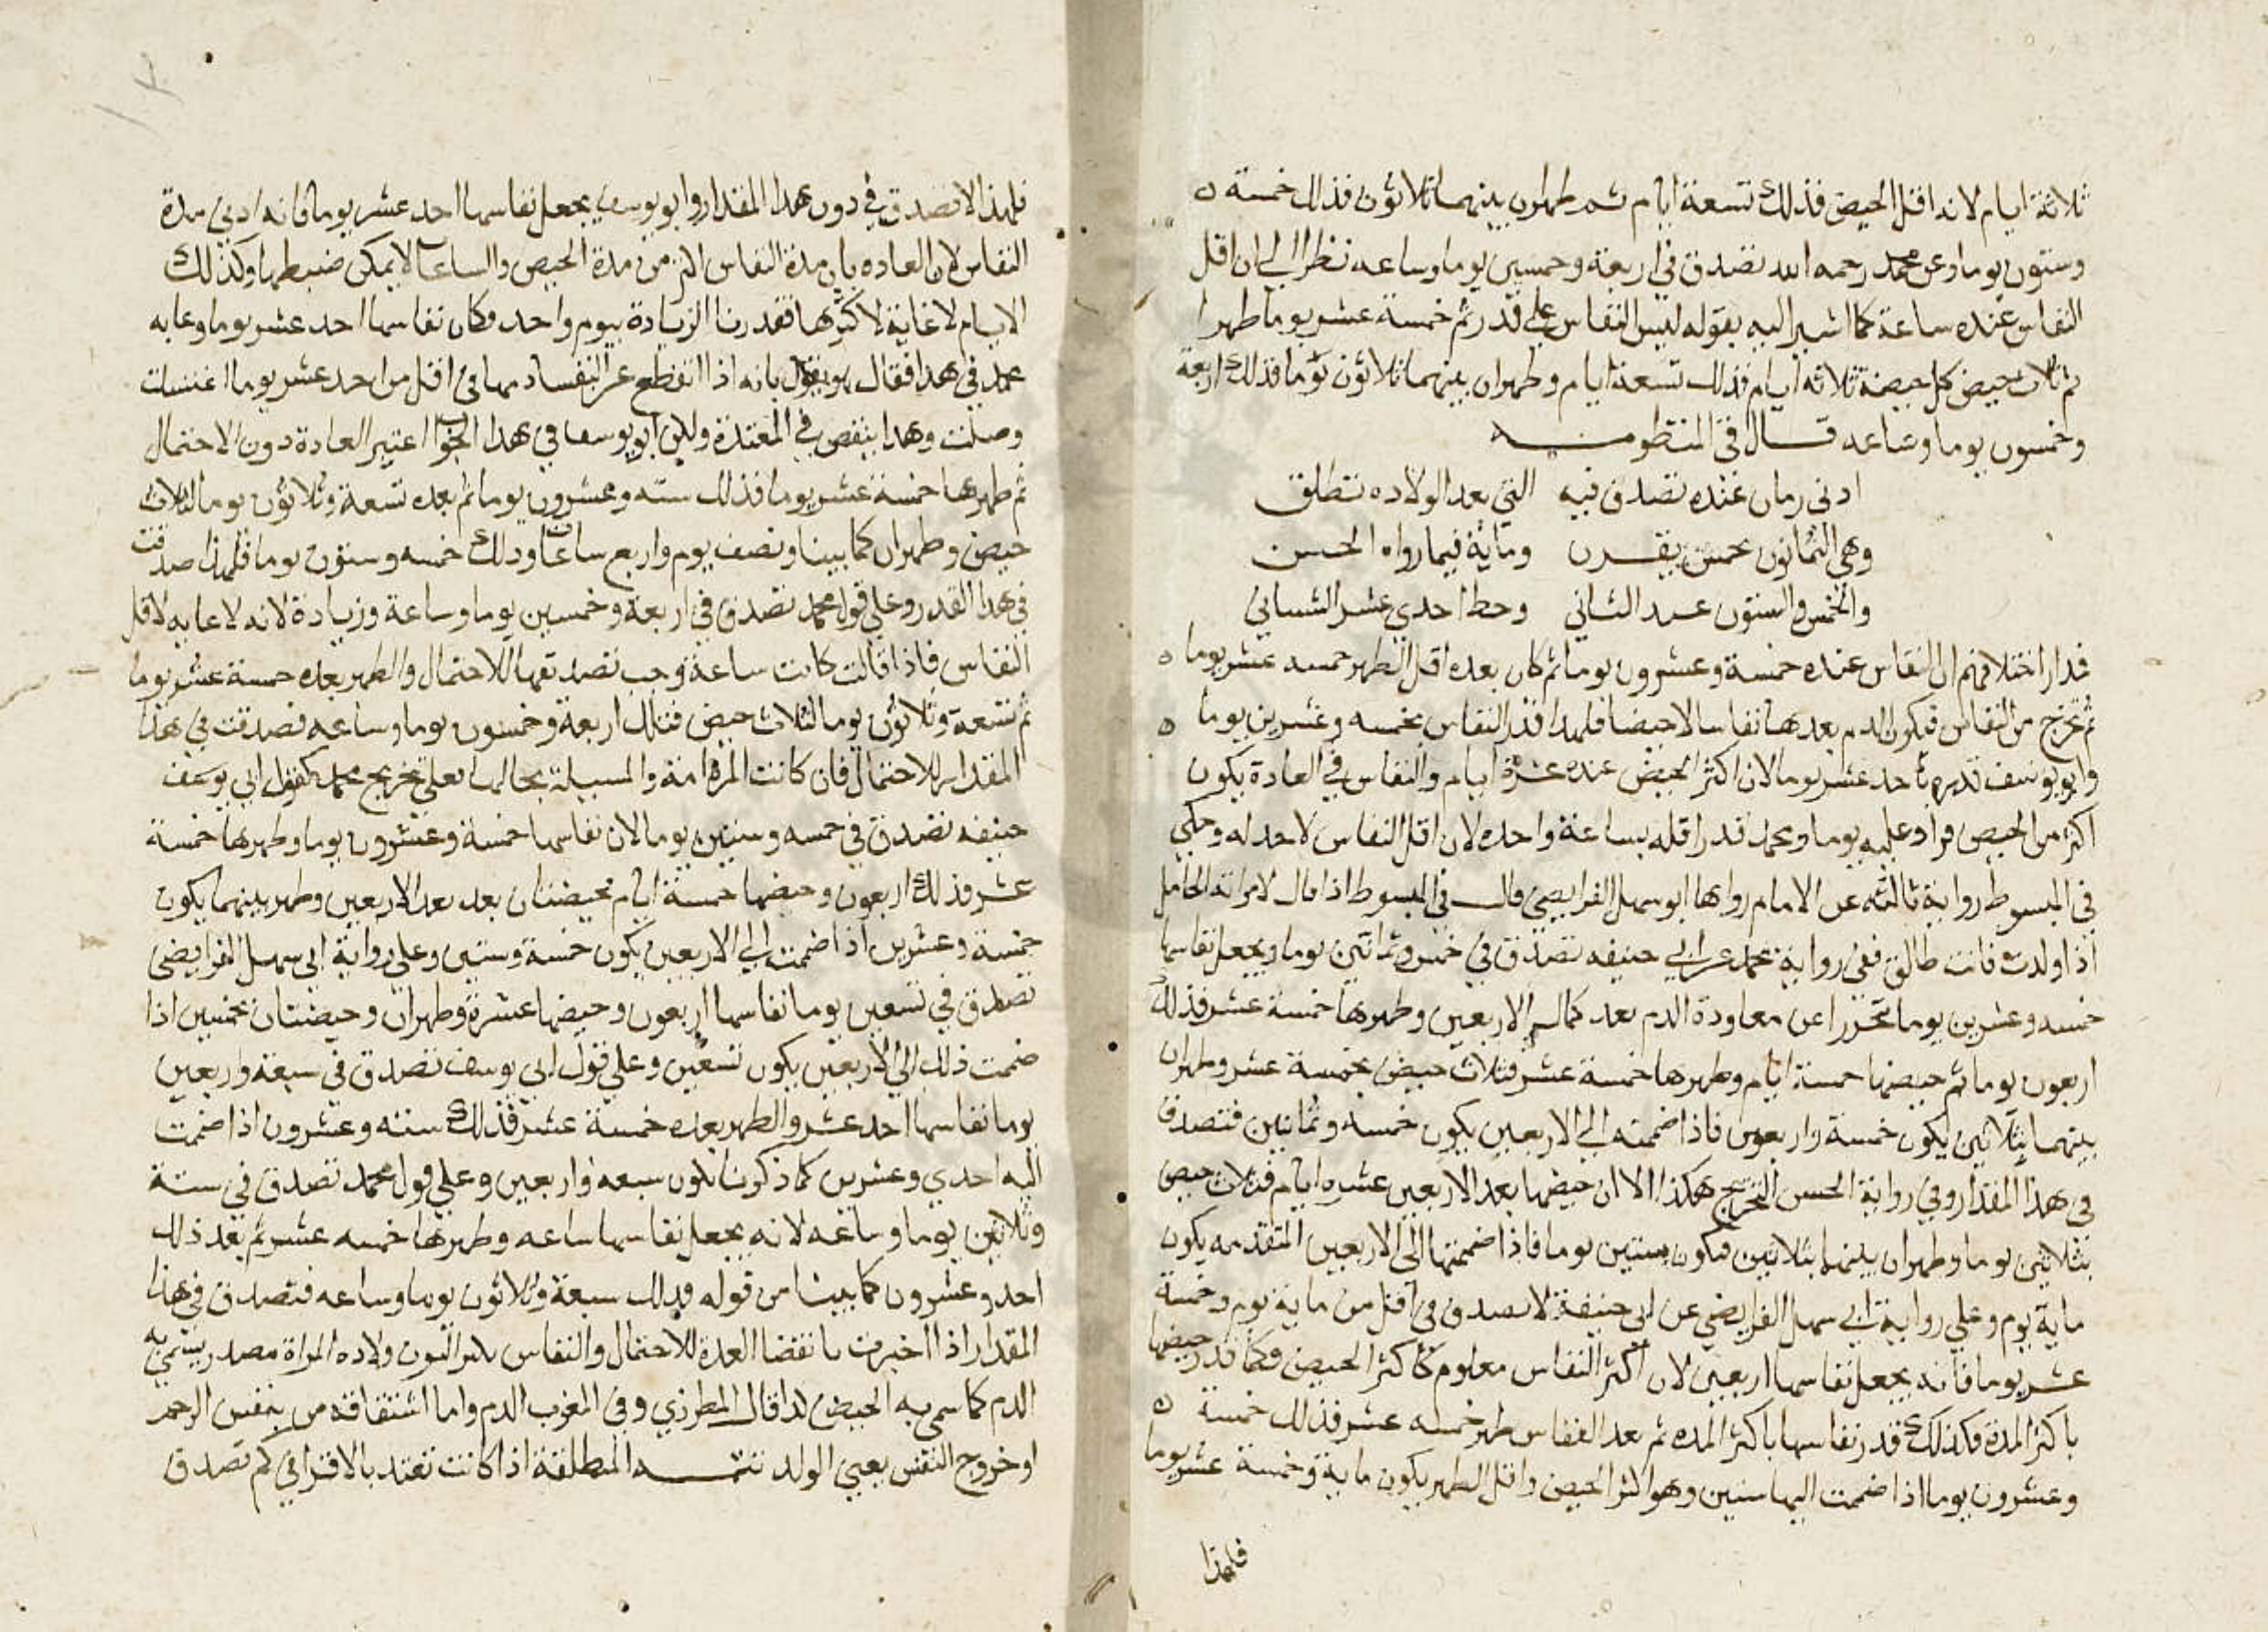 ثلاثة ايام لانه اقل الحيض فذلك تسعة ايام ثم طهران بينهما ثلاثون فذلك خمسة
وستون يوما وعن محمد رحمه الله تصدق في اربعة وخمسين يوما وساعه نظرا الي ان اقل
النفاس عنده ساعة كما اشير اليه بقوله ليس النفاس علي قدر ثم خمسة عشر يوما طهرا
ثم ثلاث حيض كل حيضة ثلاثه ايام فذلك تسعة ايام وطهران بينهما ثلاثون يوما فذلك اربعة
وخمسون يوما وساعه قال في المنظومه
ادنى زمان عنده تصدق فيه التي بعد الولاده تطلق
وهي الثمانون بخمس يقرن ومأية فيما رواه الحسن
والخمس والستون عند الثاني وحط احدي عشر الشيباني
مدار اختلافهم ان النفاس عنده خمسة وعشرون يوما ثم كان بعده اقل الطهر خمسه عشر يوما
ثم تخرج من النفاس فيكون الدم بعدها نفاسا لا حيضا فلهذا قدر النفاس بخمسه وعشرين يوما
وابو يوسف قدره باحد عشر يوما لان اكثر الحيض عنده عشرة ايام والنفاس في العادة يكون
اكثر من الحيض فزاد عليه يوما ومحمد قدر اقله بساعة واحده لان اقل النفاس لا حد له وحكي
في المبسوط رواية ثالثه عن الامام رواها ابو سهل الفرايضي قال في المبسوط اذا قال لامراته الحامل
اذا ولدت فانت طالق ففي رواية محمد عن ابي حنيفه تصدق في خمس وثمانين يوما ويجعل نفاسها
خمسه وعشرين يوما تحرزا عن معاودة الدم بعد كمال الاربعين وطهرها خمسة عشر فذلك
اربعون يوما ثم حيضها خمسة ايام وطهرها خمسة عشر فثلاث حيض بخمسة عشر وطهران
بينهما بثلاثين يكون خمسة واربعون فاذا ضممته الي الاربعين يكون خمسه وثمانين فتصدق
في هذا المقدار وفي رواية الحسن التخريج هكذا الا ان حيضها بعد الاربعين عشره ايام فثلاث حيض
بثلاثين يوما وطهران بينهما بثلاثين فيكون بستين يوما فاذا ضممتها الى الاربعين المتقدمه يكون
ماية يوم وعلي رواية ابي سهل الفرايضي عن ابي حنيفة لا تصدق في اقل من ماية يوم وخمسة
عشر يوما فانه يجعل نفاسها اربعين لان اكثر النفاس معلوم كاكثر الحيض فكما قدر حيضها
باكثر المدة فكذلك قدر نفاسها باكثر المده ثم بعد النفاس طهر خمسه عشر فذلك خمسة
وعشرون يوما اذا ضممت اليها ستين وهو اكثر الحيض واقل الطهر يكون ماية وخمسة عشر يوما
فلهذا
فلهذا لا تصدق في دون هذا المقدار وابو يوسف يجعل نفاسها احد عشر يوما فانه ادنى مدة
النفاس لان العاده بان مدة النفاس اكثر من مدة الحيض والساعات لا يمكن ضبطها وكذلك
الايام لا غاية لاكثرها فقدرنا الزيادة بيوم واحد فكان نفاسها احد عشر يوما وعابه
محمد في هذا فقال هو يقول بانه اذا انقطع عن النفسا دمها في اقل من احد عشر يوما اغتسلت
وصلت وهذا ينقض في المعتدة ولكن ابو يوسف في هذا الجواب اعتبر العادة دون الاحتمال
ثم طهرها خمسة عشر يوما فذلك سته وعشرون يوما ثم بعده تسعة وثلاثون يوما لثلاث
حيض وطهران كما بينا ونصف يوم واربع ساعات وذلك خمسه وستون يوما فلهذا صدقت
في هذا القدر وعلي قول محمد تصدق في اربعة وخمسين يوما وساعة وزيادة لانه لا غايه لاقل
النفاس فاذا قالت كانت ساعة وجب تصديقها للاحتمال والطهر بعده خمسة عشر يوما
ثم تسعة وثلاثون يوما لثلاث حيض فتلك اربعة وخمسون يوما وساعه فصدقت في هذا
المقدار للاحتمال فان كانت المراة امة والمسيلة بحالها فعلي تخريج محمد كقول ابي يوسف
حنيفه تصدق في خمسه وستين يوما لان نفاسها خمسة وعشرون يوما وطهرها خمسة
عشر فذلك اربعون وحيضها خمسة ايام فحيضتان بعد بعد الاربعين وطهر بينهما يكون
خمسة وعشرين اذا ضممت الي الاربعين يكون خمسة وستين وعلي رواية ابي سهل الفرايضى
تصدق في تسعين يوما نفاسها اربعون وحيضها عشرة وطهران وحيضتان بخمسين اذا
ضممت ذلك الي الاربعين يكون تسعين وعلي قول ابي يوسف تصدق في سبعة واربعين
يوما نفاسها احد عشر والطهر بعده خمسة عشر فذلك سته وعشرون اذا ضممت
اليه احدي وعشرين كما ذكرنا يكون سبعه واربعين وعلي قول محمد تصدق في ستة
وثلاثين يوما وساعه لانه يجعل نفاسها ساعه وطهرها خمسه عشر ثم بعد ذلك
احد وعشرون كما بينا من قوله فذلك سبعة وثلاثون يوما وساعه فتصدق في هذا
المقدار اذا اخبرت بانقضا العدة للاحتمال والنفاس بكسر النون ولاده المراة مصدر يسمى به
الدم كما سمي به الحيض كذا قال المطرزي وفي المغرب الدم واما اشتقاقه من تنفس الرحم
او خروج النفس بمعني الولد تتمه المطلقة اذا كانت تعتد بالاقراء في كم تصدق